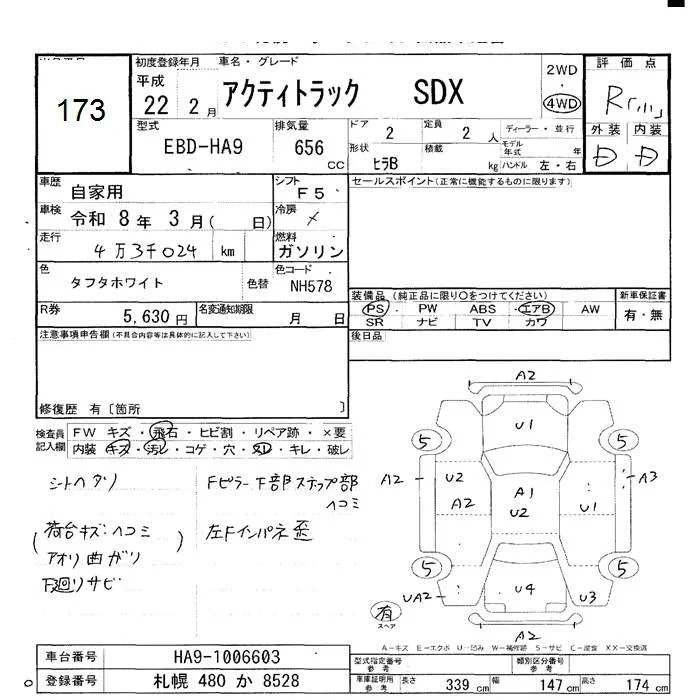 173
初度登録年月 車名・グレード
平成 22年 2月 アクティトラック SDX
2WD
・
4WD
評価点
R
外装 内装
D D
型式
EBD-HA9
排気量
656 CC
ドア 2
定員 2 人
ディーラー・並行
モデル年式 年
形状 ヒラB
積載 kg
ハンドル 左・右
車歴 自家用
シフト F5
車検 令和 8年 3月( 日)
冷房 ×
走行 4万3千024 km
燃料 ガソリン
色 タフタホワイト 色替
色コード NH578
R券 5,630円
名変通知期限 月 日
セールスポイント(正常に機能するものに限ります)
装備品(純正品に限り○をつけてください)
PS ・ PW ABS ・エアB AW
SR ナビ TV カワ
新車保証書
有・無
後日品
注意事項申告欄(不具合内容等は具体的に記入して下さい)
修復歴 有〔箇所 〕
検査員記入欄
FW キズ・飛石・ヒビ割・リペア跡・×要
内装 キズ・汚レ・コゲ・穴・スレ・キレ・破レ
シートヘタリ
(荷台キズ:ヘコミ)
アオリ曲ガリ
下廻リサビ
Fピラー下部ステップ部
ヘコミ
左Fインパネ歪
A2
U1
5 5
A2 U2 A1 A3
A2 U2 U1
5 5
UA2 U4 U3
A2
有
スペア
A-キズ E-エクボ U-凹み W-補修跡 S-サビ C-腐食 XX-交換済
車台番号 HA9-1006603
登録番号 札幌 480 か 8528
型式指定番号
参考
類別区分番号
参考
車庫証明用
参考
長さ 339 cm 幅 147 cm 高さ 174 cm